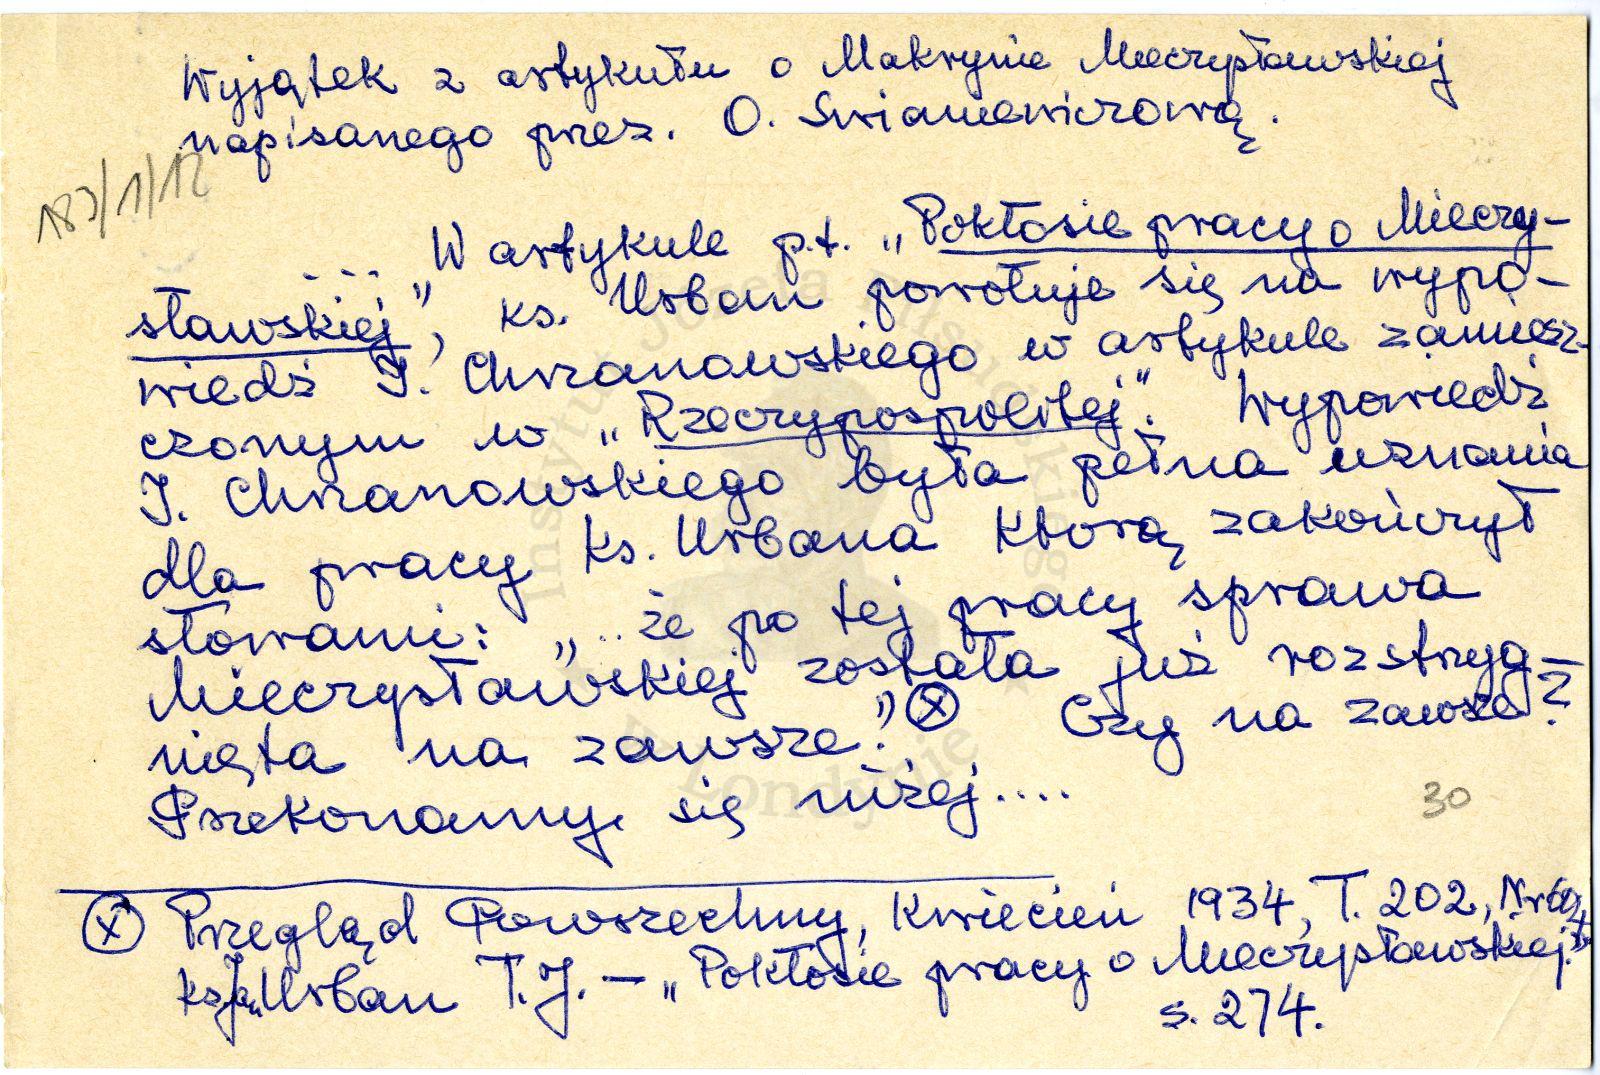 Wyjątek z artykułu o Makrynie Mieczysławskiej
napisanego przez. O. Swianiewiczową.
183/1/12
... W artykule p.t. „Pokłosie pracy o Mieczy-
sławskiej”, ks. Urban powołuje się na wypo-
wiedź I. Chrzanowskiego w artykule zamiesz-
czonym w „Rzeczypospolitej”. Wypowiedź
I. Chrzanowskiego była pełna uznania
dla pracy ks. Urbana którą zakończył
słowami: „..że po tej pracy sprawa
Mieczysławskiej została już rozstrzyg-
nięta na zawsze.” ⓧ Czy na zawsze?
Przekonamy się niżej....
30
ⓧ Przegląd Powszechny, Kwiecień 1934, T. 202, Nr
ks. Jan Urban T.J. — „Pokłosie pracy o Mieczysławskiej”
s. 274.
Instytut Józefa Piłsudskiego
w Londynie